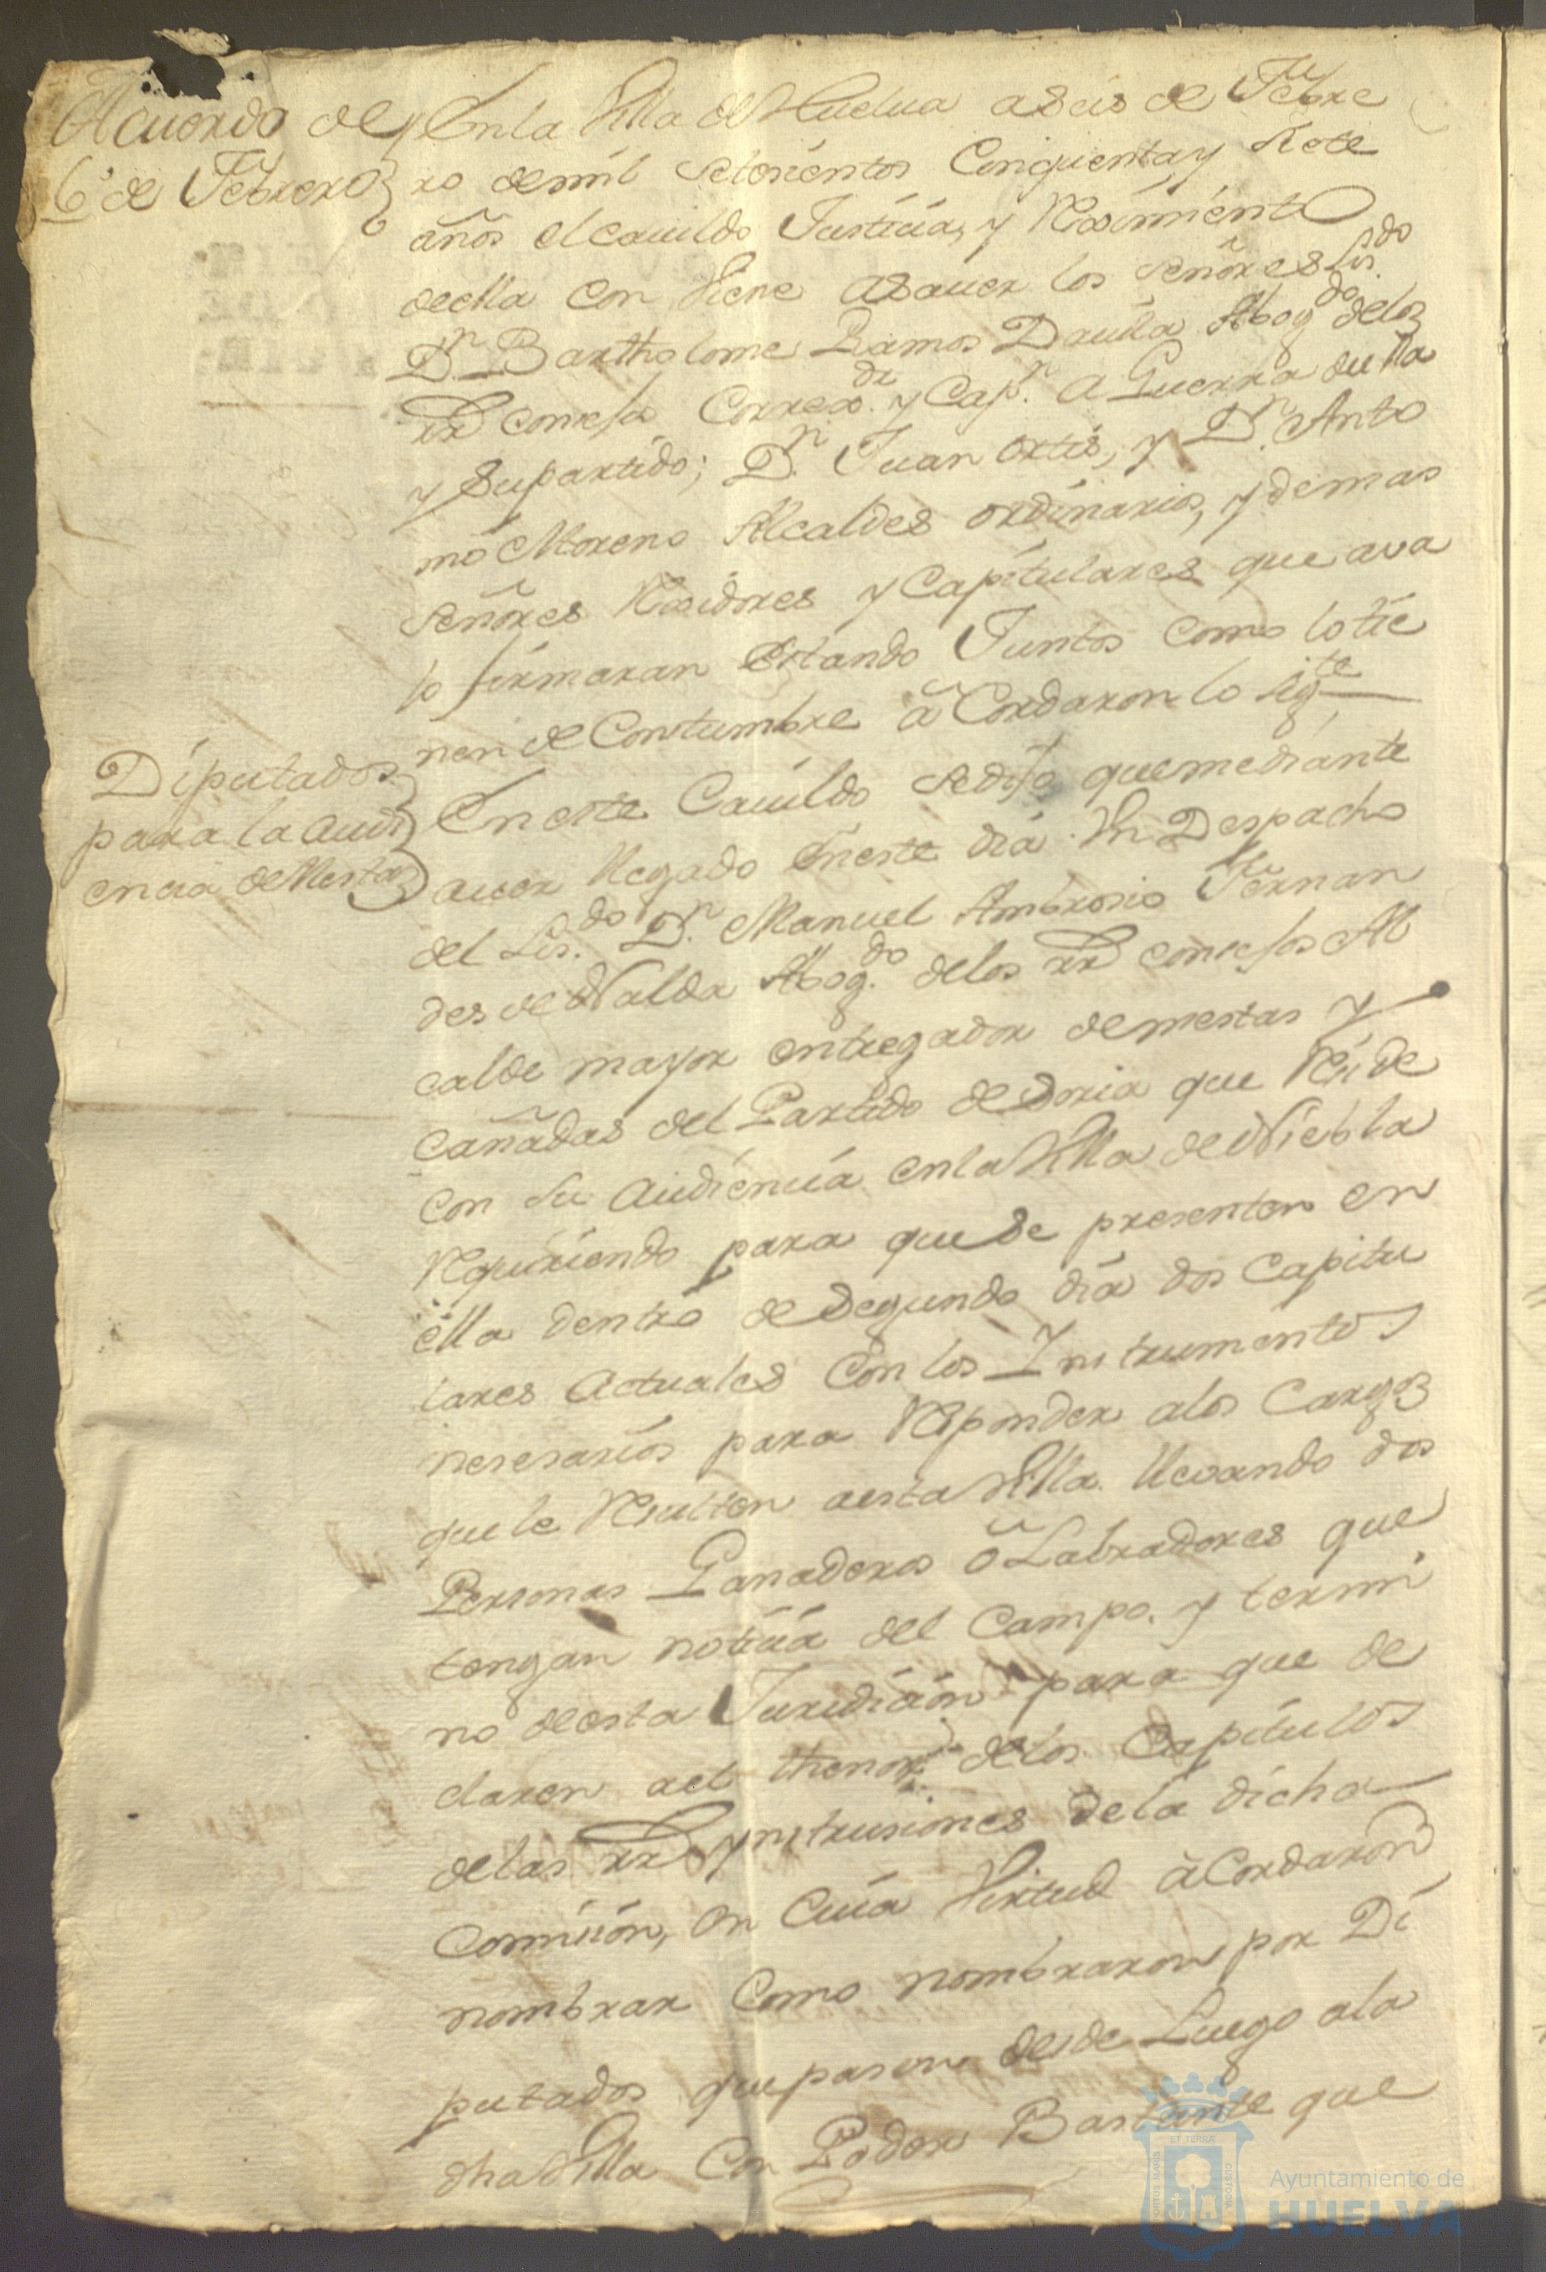 Acuerdo de
6 de Febrero
En la Villa de Huelua a Seis de Febre
ro de mil Setesientos Cinquenta y Siete
años el cauildo Justicia, y Reximiento
de ella Con Viene a Sauer los Señores Lisdo
Dn Bartholome Ramos Dauila Abogdo de los
RR consejos Correxor y Capn a Guerra de ella
y Su partido; Dn Juan Ortis, y Dn Anto
nio Moreno Alcaldes ordinarios, y demas
Señores Rexidores y Capitulares que ava
jo firmaran Estando Juntos Como lo tie
nen de Constumbre aCordaron lo sigte
Diputados
para la audi
encia de Mestas
En este Cauildo Se dijo que mediante
auer llegado En este dia Un Despacho
del Lisdo Dn Manuel Ambrosio Fernan
des de Valda Abogdo de los RR consejos Al
calde mayor entregador de mestas y
cañadas del Partido de Soria que Reside
con su audiencia en la Villa de Niebla
Requiriendo para que Se presenten en
ella dentro de Segundo dia dos Capitu
lares Actuales Con los Instrumentos
nesesarios para Responder a los Cargos
que le Resulten a esta Villa llevando dos
Personas Ganaderos o Labradores que
tengan noticia del Campo y termi
no de esta Juridicion para que de
claren a el thenor de los Capitulos
de las RR ynstrusiones de la dicha
Comision, en Cuia Virtud aCordaron
nombrar Como nombraron por Di
putados que pasen desde Luego a la
dha Villa Con Poder Bastante que
PORTUS MARIS
ET TERRÆ
CUSTODIA
Ayuntamiento de
HUELVA